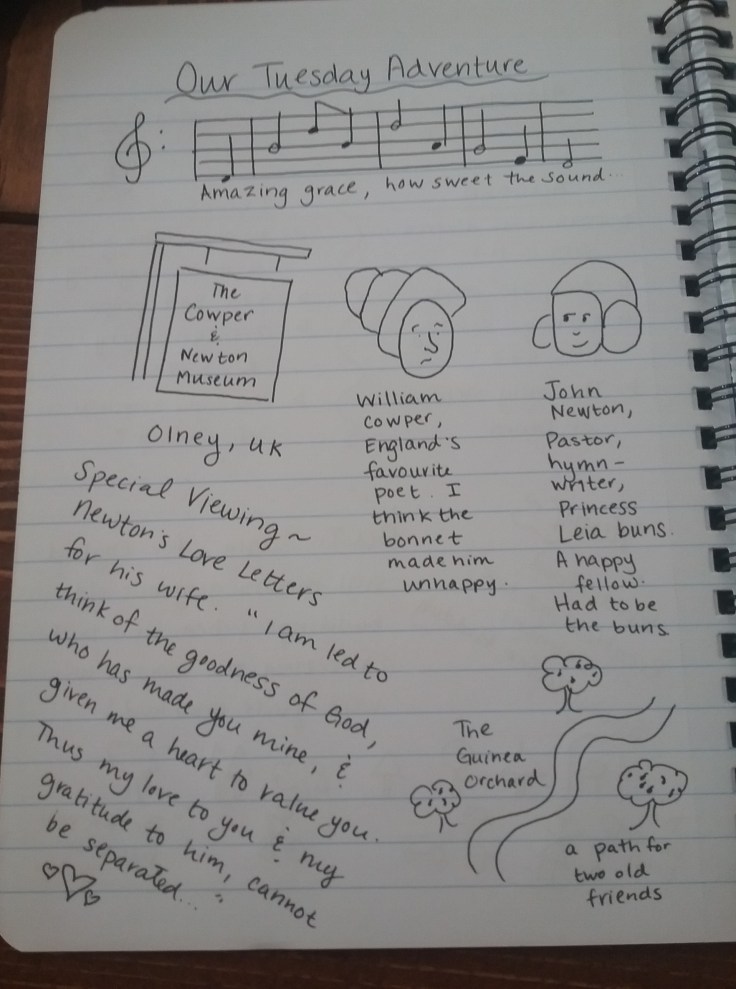 Our Tuesday Adventure
Amazing grace, how sweet the sound...
The
Cowper
&
Newton
Museum
Olney, UK
William
Cowper,
England's
favourite
poet. I
think the
bonnet
made him
unhappy.
John
Newton,
Pastor,
hymn-
writer,
Princess
Leia buns.
A happy
fellow.
Had to be
the buns.
Special Viewing ~
Newton's Love Letters
for his wife. "I am led to
think of the goodness of God,
who has made you mine, &
given me a heart to value you.
Thus my love to you & my
gratitude to him, cannot
be separated..."
The
Guinea
Orchard
a path for
two old
friends